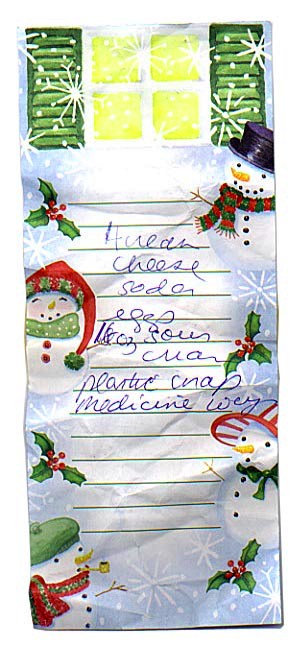 4 cream
cheese
soda
eggs
16oz sour
cream
plastic wrap
medicine